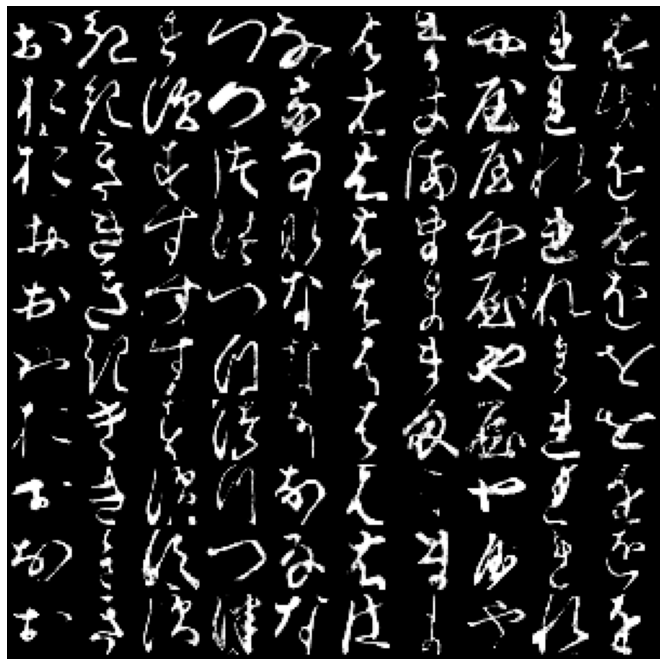 お き す つ な は ま や れ を
お き す つ な は ま や れ を
お き す つ な は ま や れ を
お き す つ な は ま や れ を
お き す つ な は ま や れ を
お き す つ な は ま や れ を
お き す つ な は ま や れ を
お き す つ な は や れ を
お き す つ な は ま や れ を
お き す つ な は ま や れ を